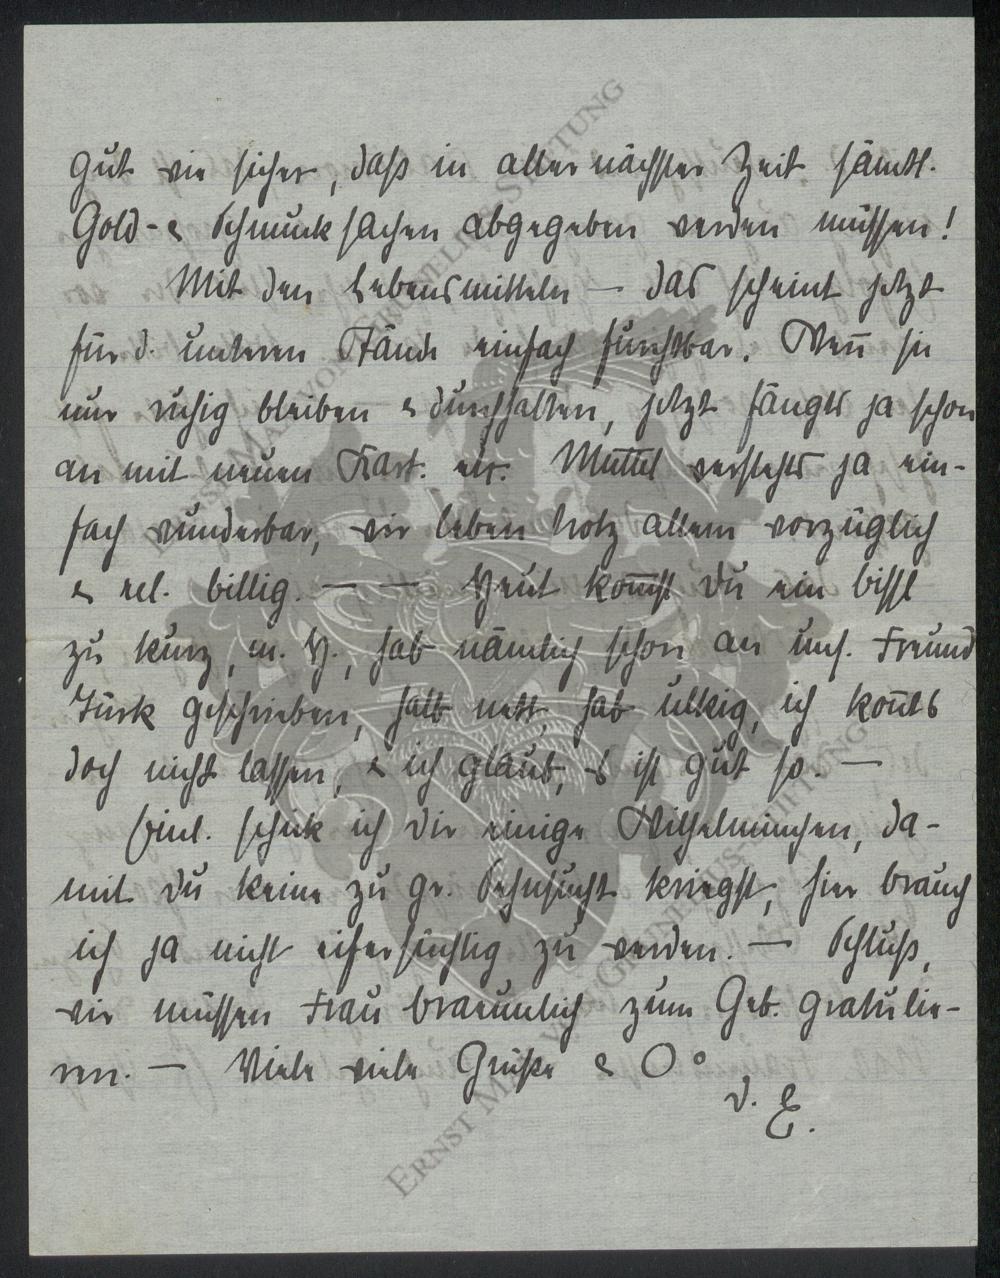 gut wie sicher, daß in aller nächster Zeit sämtl.
Gold- & Schmucksachen abgegeben werden müssen!
Mit den Lebensmitteln — das scheint jetzt
für d. unteren Stände einfach furchtbar. Wen̄ sie
nur ruhig bleiben & durchhalten, jetzt fängts ja schon
an mit neuen Kart. etc. Muttel verstehts ja ein-
fach wunderbar, wir leben trotz allem vorzüglich
& rel. billig. — — Heut kom̄st Du ein bissl
zu kurz, m. H., hab nämlich schon an uns. Freund
Türk geschrieben, halb nett, hab ulkig, ich kon̄ts
doch nicht lassen, & ich glaub, es ist gut so. —
Viel. schick ich Dir einige Wilhelminchen, da-
mit Du keine zu gr. Sehnsucht kriegst, hier brauch
ich ja nicht eifersüchtig zu werden. — Schluß,
wir müssen Frau Braeunlich zum Geb. gratulie-
ren. — Viele viele Grüße & O°
D. E.
ERNST MAX VON GRUNELIUS-STIFTUNG
ERNST MAX VON GRUNELIUS-STIFTUNG